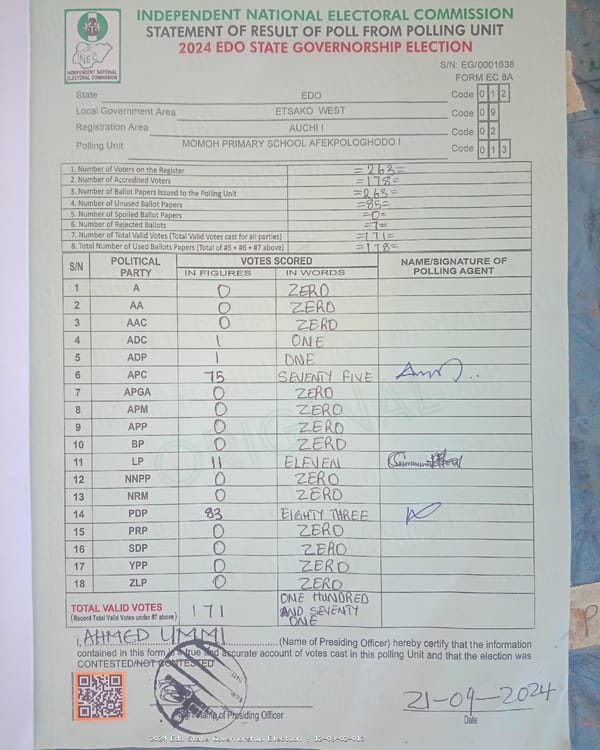 INDEPENDENT NATIONAL ELECTORAL COMMISSION
STATEMENT OF RESULT OF POLL FROM POLLING UNIT
2024 EDO STATE GOVERNORSHIP ELECTION
INEC
INDEPENDENT NATIONAL
ELECTORAL COMMISSION
S/N: EG/0001638
FORM EC 8A
State EDO Code 0 1 2
Local Government Area ETSAKO WEST Code 0 9
Registration Area AUCHI I Code 0 2
Polling Unit MOMOH PRIMARY SCHOOL AFEKPOLOGHODO I Code 0 1 3
1. Number of Voters on the Register =263=
2. Number of Accredited Voters =178=
3. Number of Ballot Papers Issued to the Polling Unit =263=
4. Number of Unused Ballot Papers =85=
5. Number of Spoiled Ballot Papers =0=
6. Number of Rejected Ballots =7=
7. Number of Total Valid Votes (Total Valid Votes cast for all parties) =171=
8. Total Number of Used Ballots Papers (Total of #5 + #6 + #7 above) =178=
S/N POLITICAL PARTY VOTES SCORED NAME/SIGNATURE OF POLLING AGENT
IN FIGURES IN WORDS
1 A 0 ZERO
2 AA 0 ZERO
3 AAC 0 ZERO
4 ADC 1 ONE
5 ADP 1 ONE
6 APC 75 SEVENTY FIVE
7 APGA 0 ZERO
8 APM 0 ZERO
9 APP 0 ZERO
10 BP 0 ZERO
11 LP 11 ELEVEN
12 NNPP 0 ZERO
13 NRM 0 ZERO
14 PDP 83 EIGHTY THREE
15 PRP 0 ZERO
16 SDP 0 ZERO
17 YPP 0 ZERO
18 ZLP 0 ZERO
ORIGINAL
TOTAL VALID VOTES 171 ONE HUNDRED AND SEVENTY ONE
(Record Total Valid Votes under #7 above)
I, AHMED UMMI (Name of Presiding Officer) hereby certify that the information
contained in this form is a true and accurate account of votes cast in this polling Unit and that the election was
CONTESTED/NOT CONTESTED
of Presiding Officer
21-09-2024
Date
2024 Edo State Governorship Election : 12-09-02-013